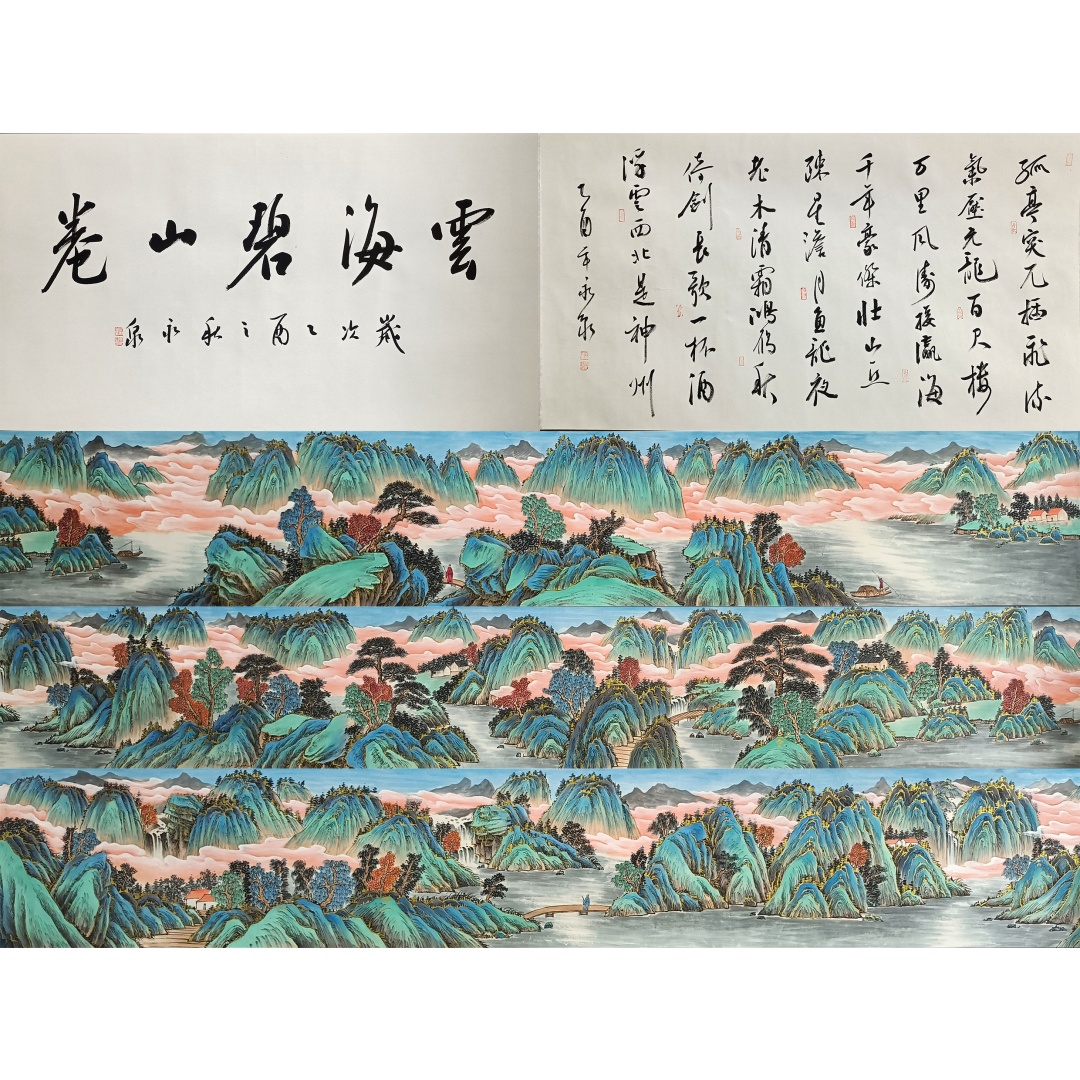 雲海碧山卷
歲次乙酉之秋永泉
孤亭突兀插飛流
氣壓元龍百尺樓
万里风濤接瀛海
千年豪傑壮山丘
疎星澹月魚龍夜
老木清霜鴻雁秋
倚劍長歌一杯酒
浮雲西北是神州
乙酉年永泉